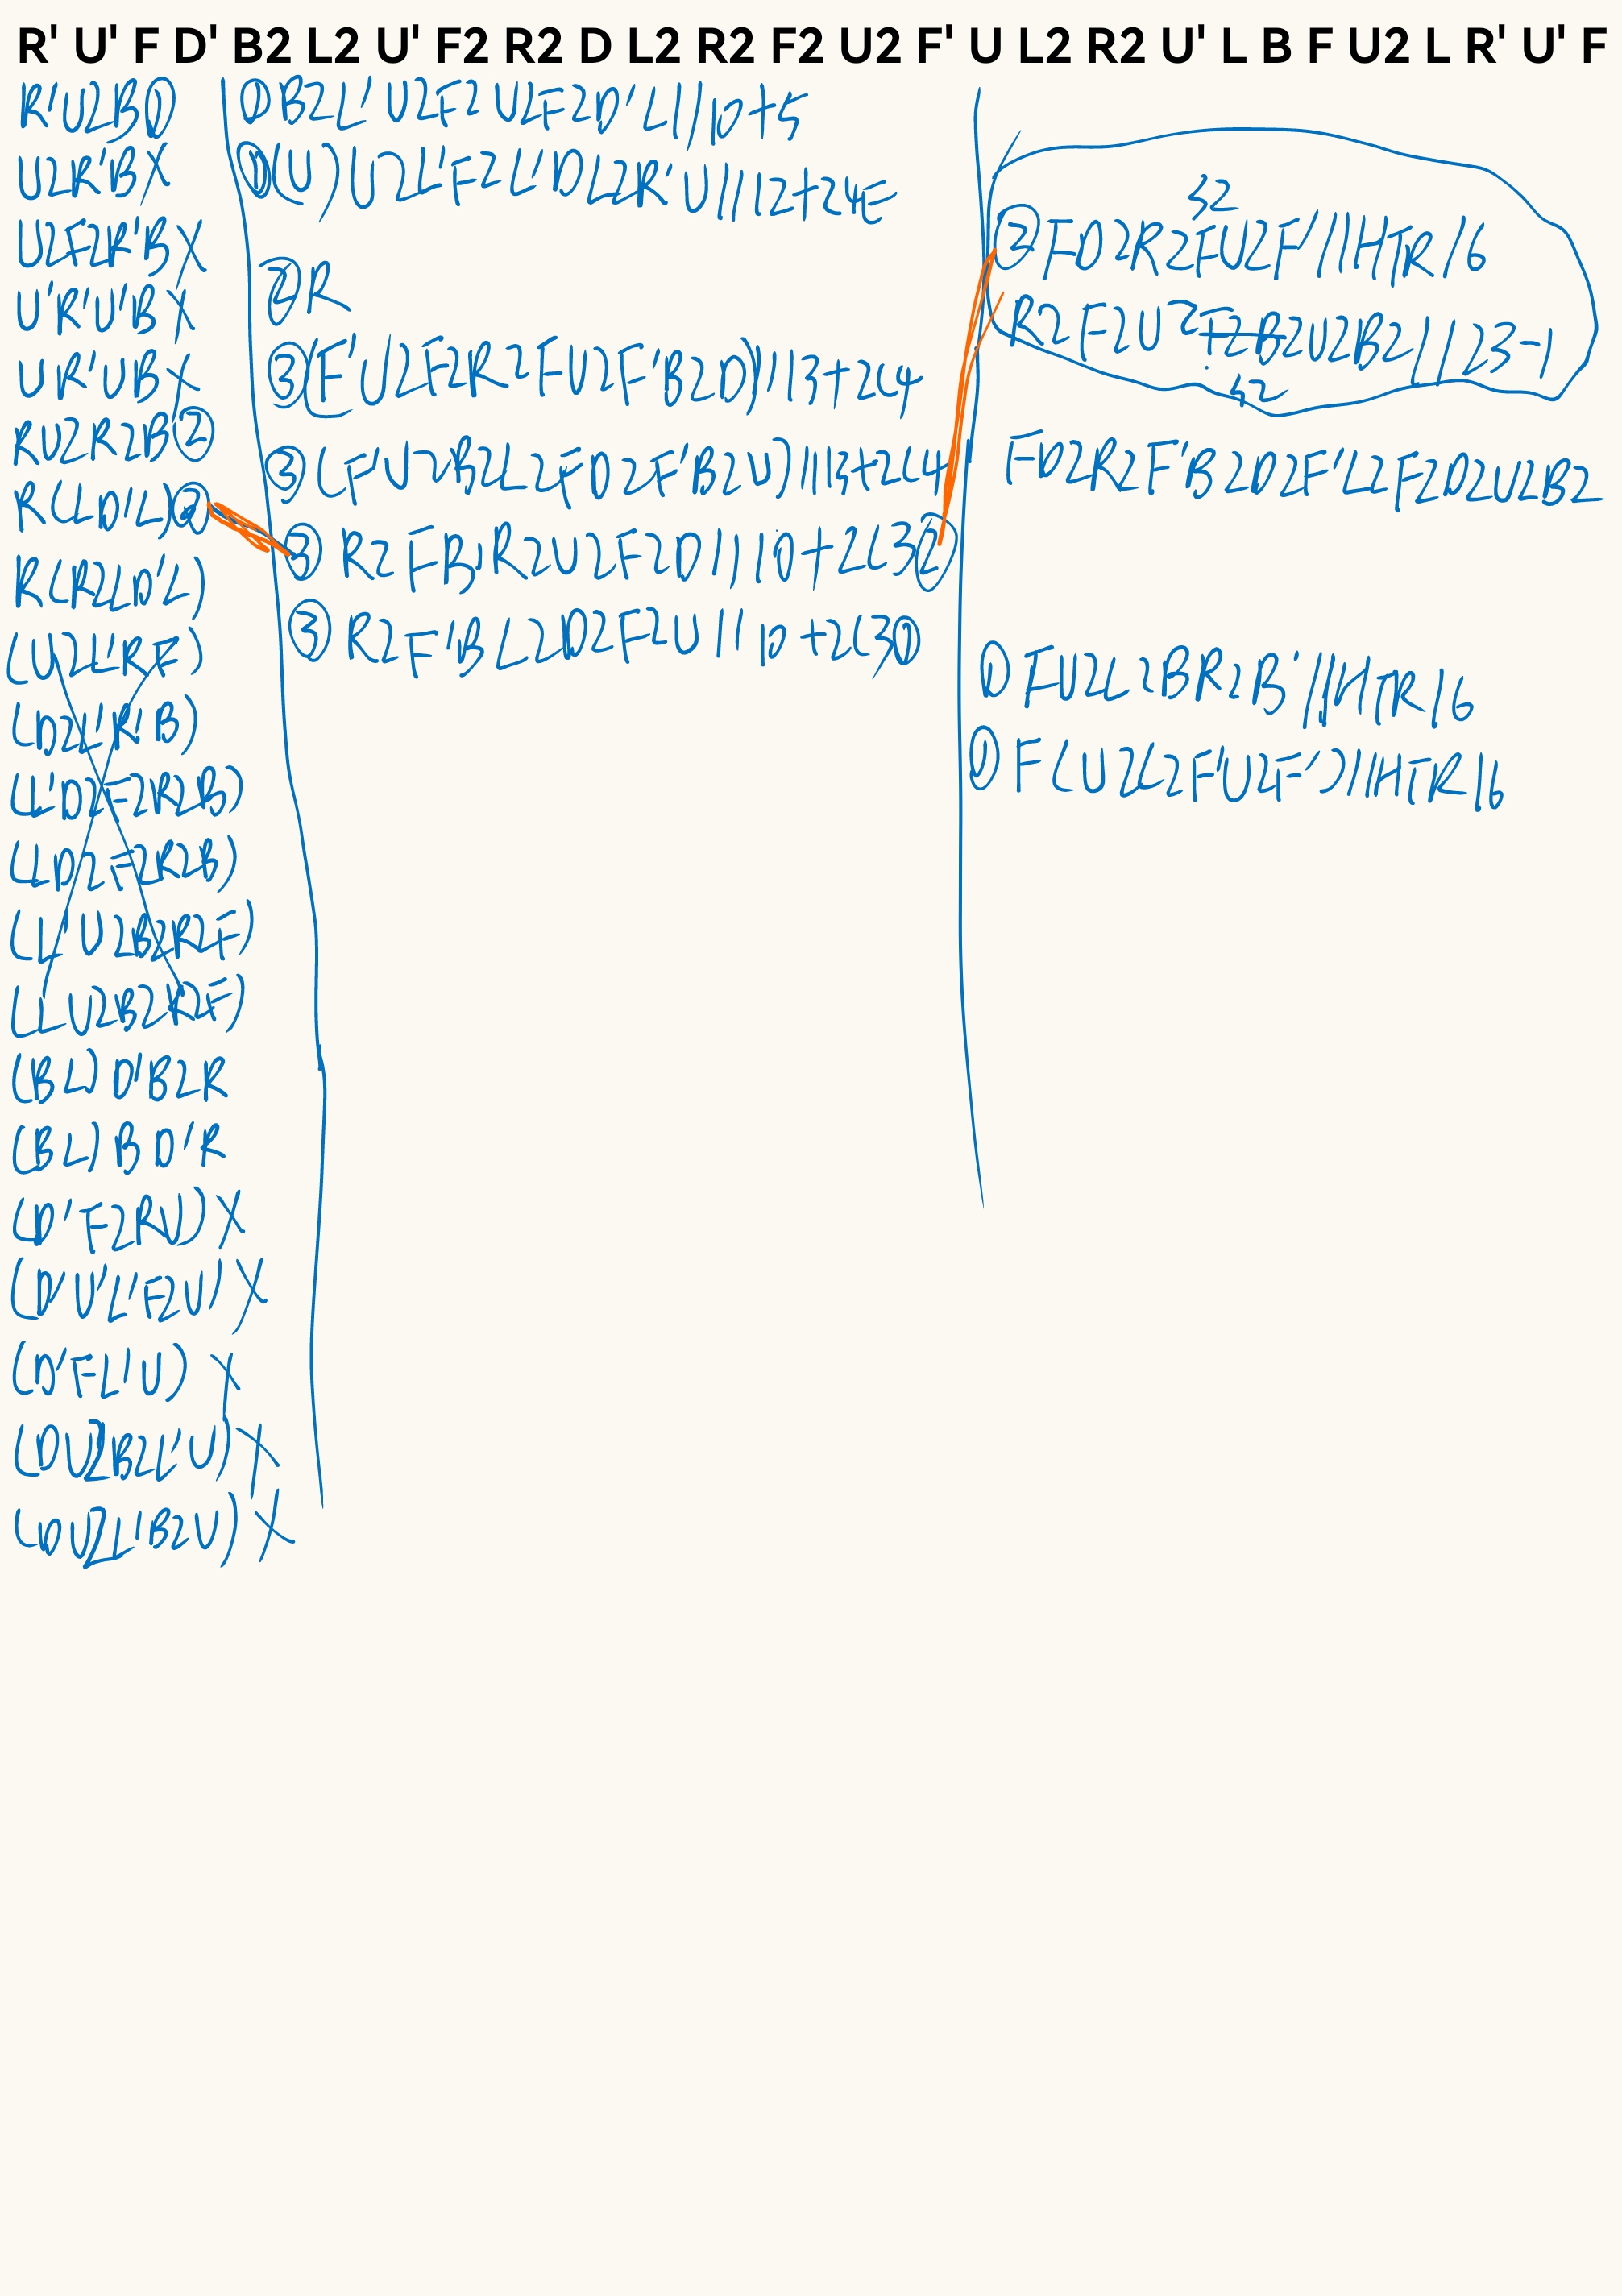 R' U' F D' B2 L2 U' F2 R2 D L2 R2 F2 U2 F' U L2 R2 U' L B F U2 L R' U' F
R'U2B①
U2R'B X
U2F2R'B X
U'R'U'B X
UR'UB X
RU2R2B②
R(LD'L)③
R(R2LD'L)
(U2L'RF)
(D2L'R'B)
(L'D2F2R2B)
(LD2F2R2B)
(L'U2B2R2F)
(LU2B2R2F)
(BL)D'B2R
(BL)BD'R
(D'F2RU) X
(D'U'L'F2U) X
(D'FL'U) X
(DU2B2L'U) X
(DU2L'B2U) X
①B2L'U2F2U2F2D'L//10+5
①(U)U2L'F2L'DL2R'U//12+24E
②R
③(F'U2F2R2FU2F'B2D)//13+2C4
③(F'U2B2L2FD2F'B2U)//13+2C4
③R2FB'R2U2F2D//10+2C3②
③R2F'BL2D2F2U//10+2C3①
s2
②FD2R2FU2F'//HTR/6
R2F2U2F2B2U2B2//23-1
s2
FD2R2F'B2D2F'L2F2D2U2B2
①FU2L2BR2B'//HTR/6
①F(U2L2F'U2F')//HTR/6